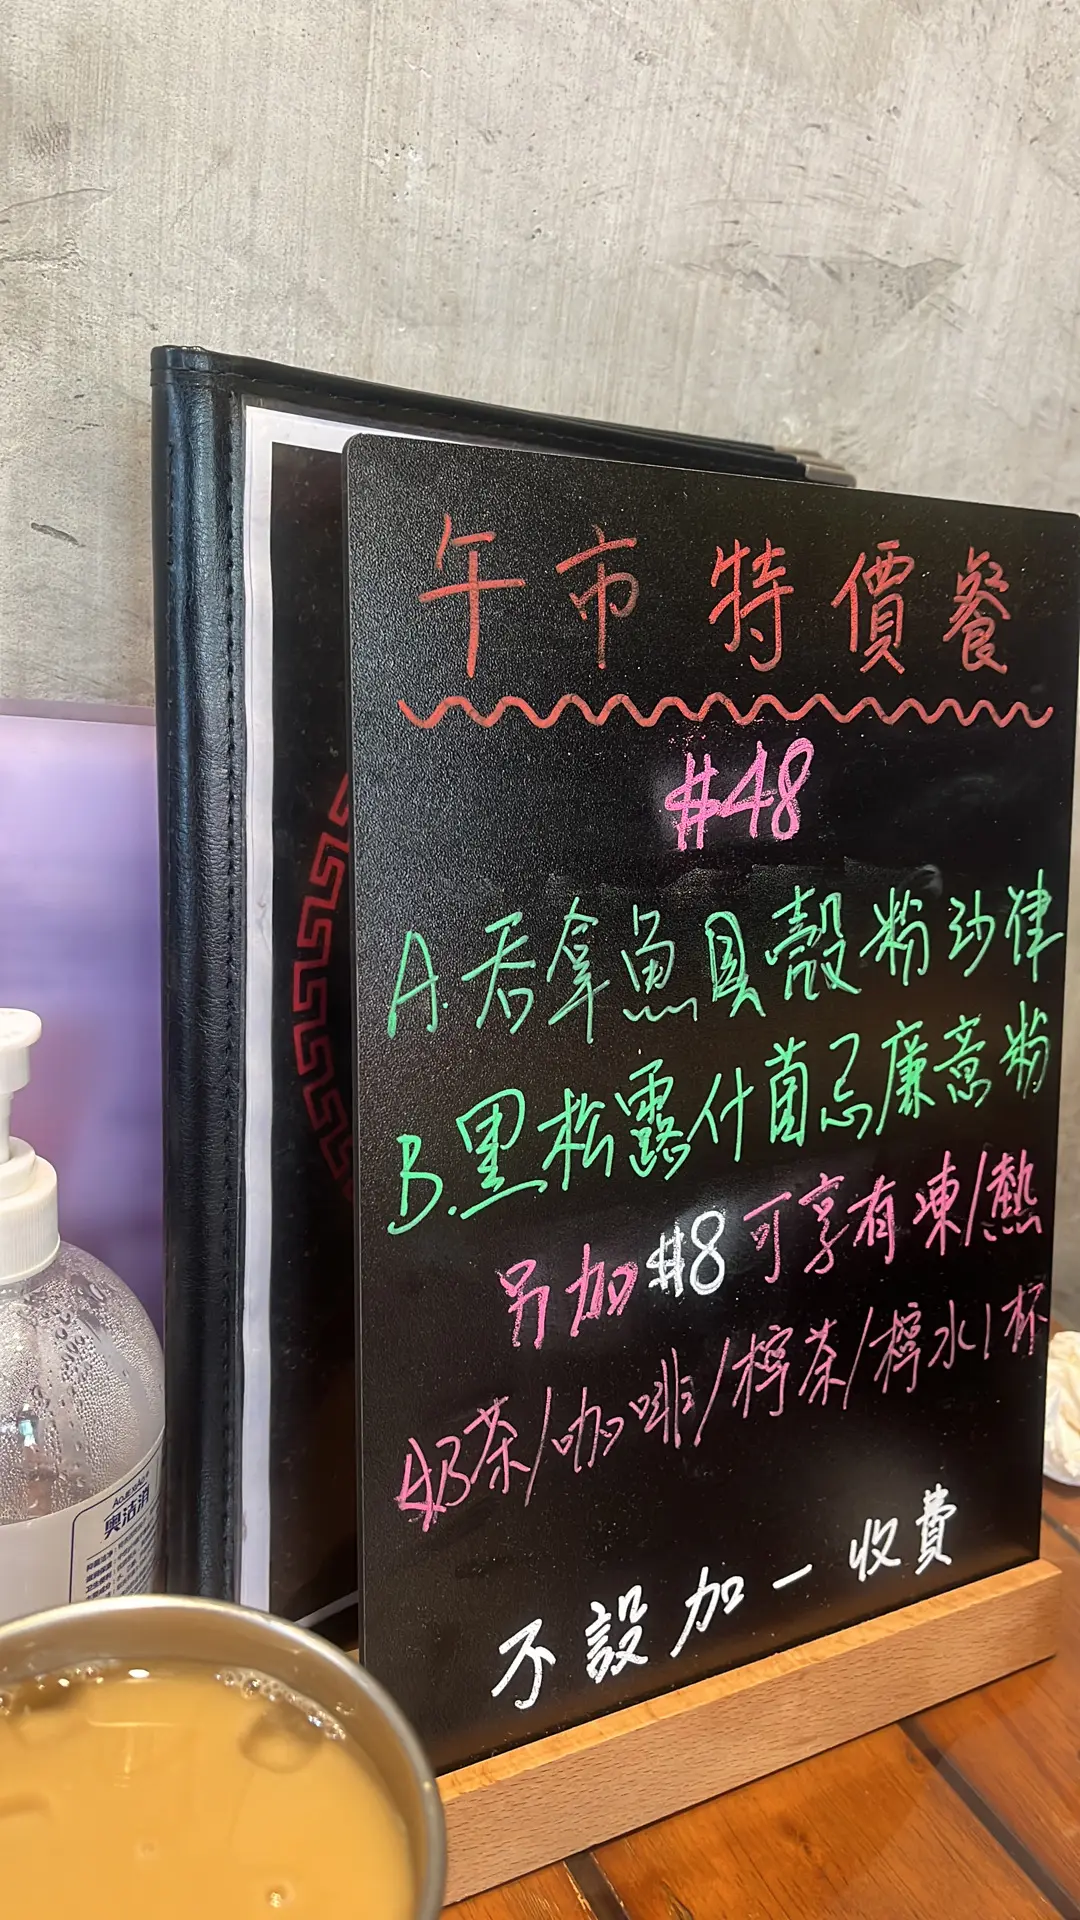 午市特價餐
$48
A.吞拿魚貝殼粉沙律
B.黑松露什菌忌廉意粉
另加$8可享有凍/熱
奶茶/咖啡/檸茶/檸水1杯
不設加一收費
奥洁消